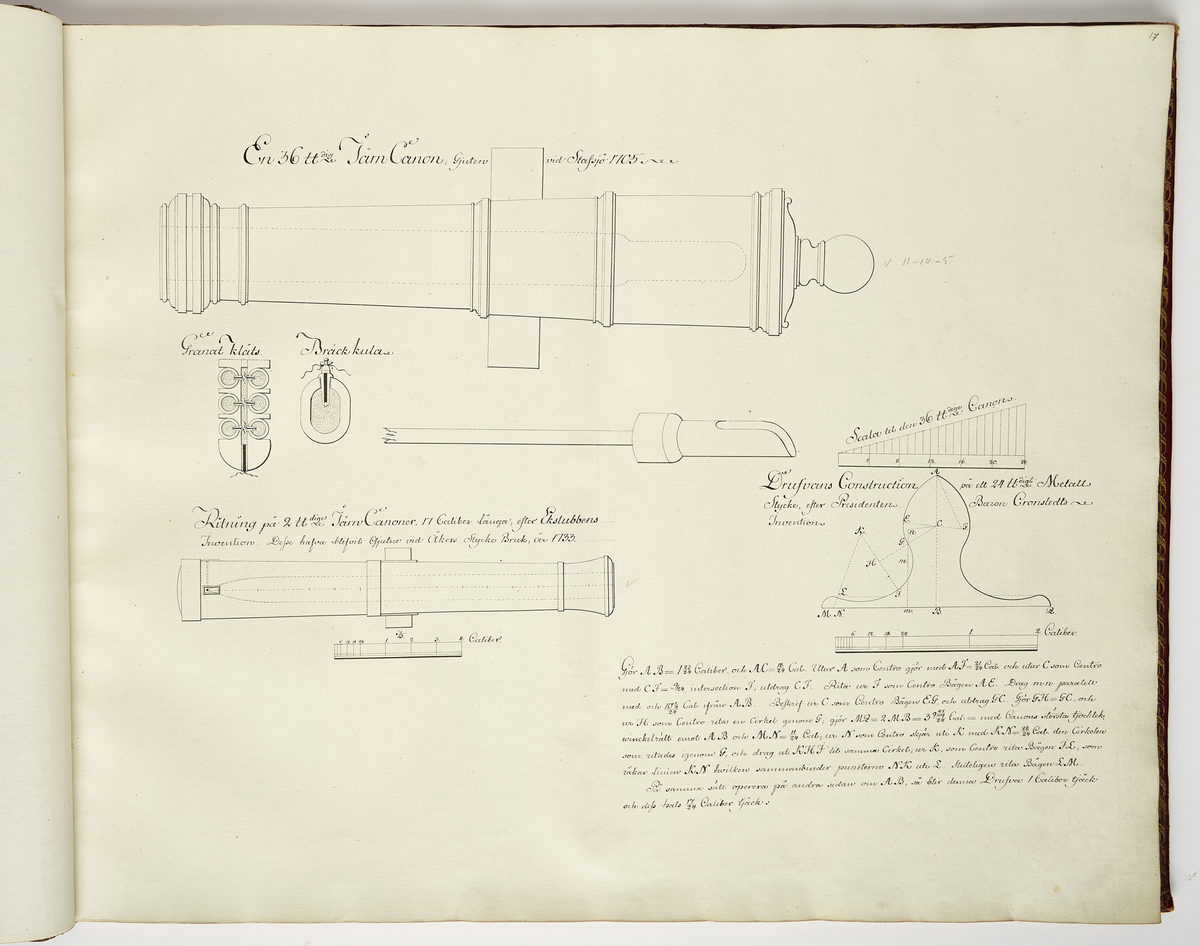 17
En 36 ttdige Järn Canon, Guten vid Stafsjö 1705.
V 11-10-5
Granat Kläts.
Bräck kula
Scala til den 36 ttdige Canon.
4 8 12 16 20 24
Drufvans Construction på ett 24 ttdigt Metall
Stycke, efter Presidenten Baron Cronstedts
Invention.
A
E C G
K n
G
H m
L F
M N m B L
6 12 18 24 1 2 Caliber
Ritning på 2 ttdiges Järn Canoner, 17 Caliber länga; efter Ekstubbens
Invention. Desse hafva blifvit Gjutne vid Åkers Stycke Bruk, år 1733.
V
B
6 12 18 24 1 2 3 Caliber
Gör AB = 1 Caliber, och AC = Cal. Utur A som Centro gjör med AF = Cal. och utur C som Centro
med CF = intersection F, utdrag CF. Rita ur F som Centro Bågen AE. Drag mn paralelt
med och Cal. ifrån AB. Beskrif ur C som Centro Bågen EG, och utdrag GC. Gör GH = GC, och
ur H som Centro rita en Cirkel genom G; gjör ML = 2MB = 3 Cal. = med Canons största tjocklek,
winckelrätt emot AB och MN = Cal; ur N som Centro skjär uti K med KN = Cal. den Cirkelen
som ritades igenom G, och drag ut KHF til samma Cirkel; ur K, som Centro rita Bågen FL, som
råkar Linien KN hwilken sammanbinder puncterne NK uti L. Sluteligen rita Bågen LM.
På samma sätt operera på andra sidan om AB, så blir denna Drufva 1 Caliber tjock
och dess hals Caliber tjock.